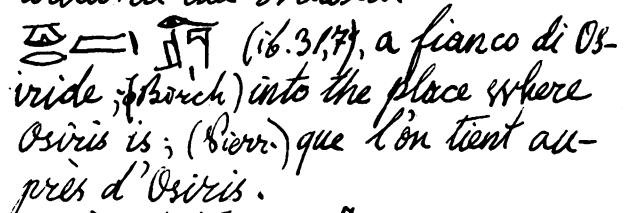 (ib. 31,7), a fianco di Os-
iride; (Birch) into the place where
Osiris is; (Pierr.) que l'on tient au-
près d'Osiris.